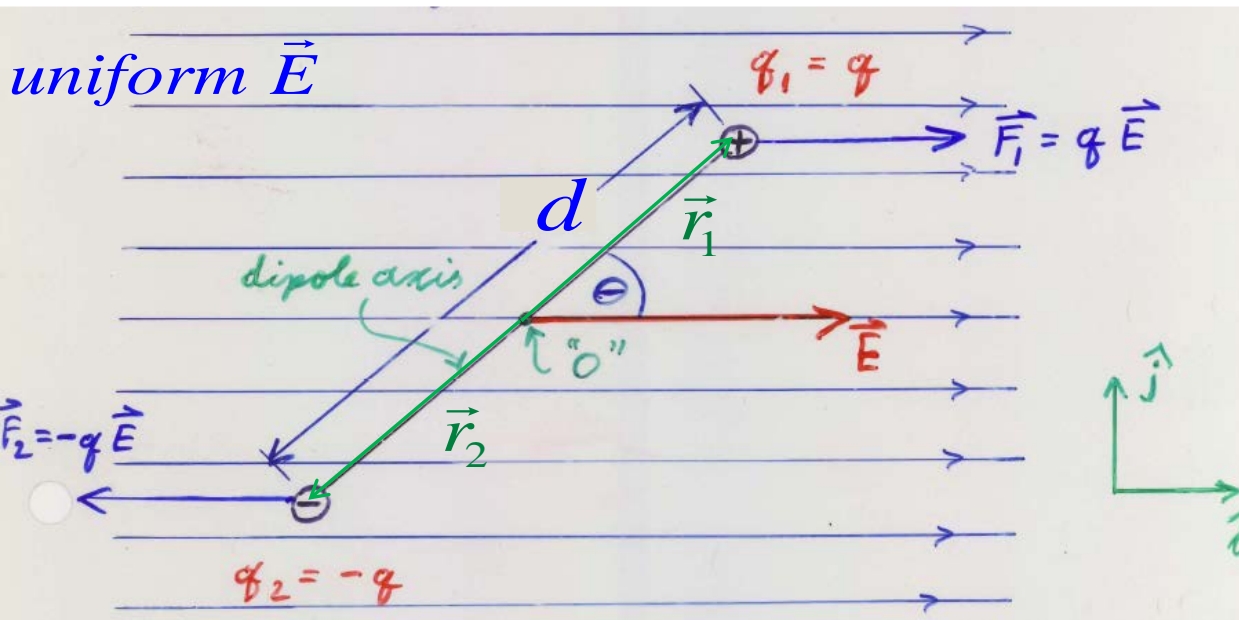 uniform \vec{E}
q₁ = q
\vec{F}₁ = q \vec{E}
d
\vec{r}₁
dipole axis
θ
"O"
\vec{E}
ĵ
\vec{F}₂ = -q \vec{E}
\vec{r}₂
î
q₂ = -q